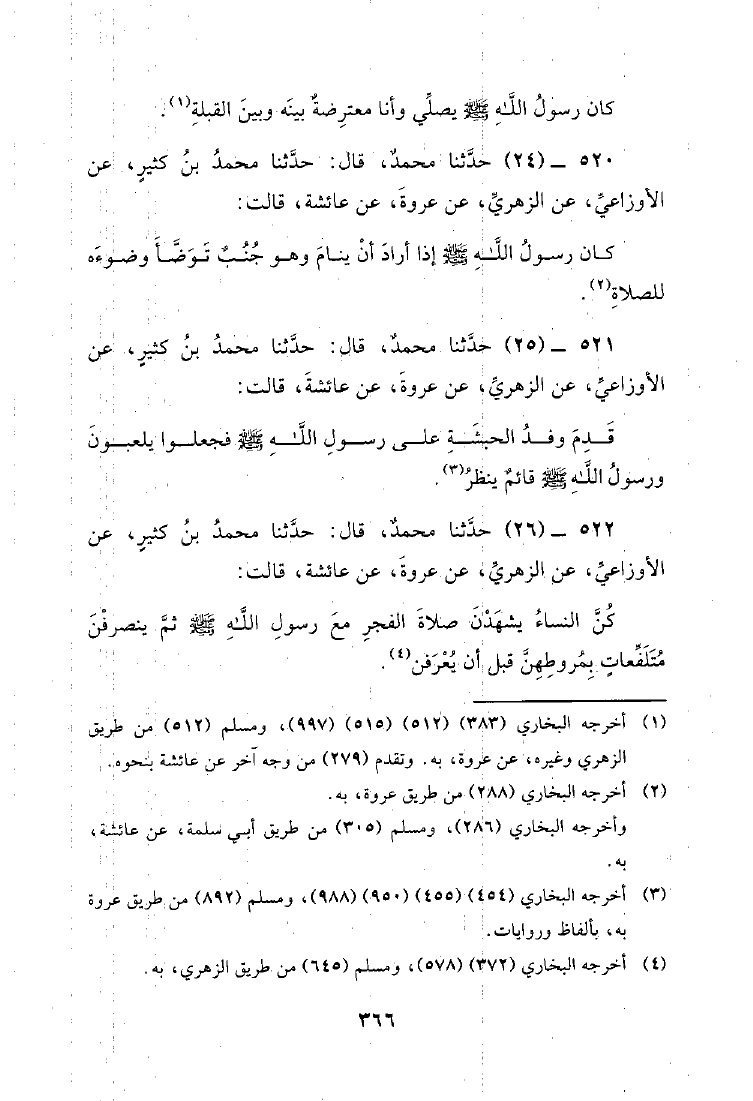 كان رسولُ اللَّهِ ﷺ يصلِّي وأنا معترِضةٌ بينَه وبينَ القبلةِ(١).
٥٢٠ ـ (٢٤) حدَّثنا محمدٌ، قال: حدَّثنا محمدُ بنُ كثيرٍ، عن
الأوزاعيِّ، عن الزهريِّ، عن عروةَ، عن عائشة، قالت:
كـان رسـولُ اللَّـهِ ﷺ إذا أرادَ أنْ ينـامَ وهـو جُنُـبٌ تَـوَضَّـأَ وضـوءَه
للصلاةِ(٢).
٥٢١ ـ (٢٥) حدَّثنا محمدٌ، قال: حدَّثنا محمدُ بنُ كثيرٍ، عن
الأوزاعيِّ، عن الزهريِّ، عن عروةَ، عن عائشةَ، قالت:
قَـدِمَ وفـدُ الحبشَـةِ علـى رسـولِ اللَّـهِ ﷺ فجعلـوا يلعبـونَ
ورسولُ اللَّهِ ﷺ قائمٌ ينظرُ(٣).
٥٢٢ ـ (٢٦) حدَّثنا محمدٌ، قال: حدَّثنا محمدُ بنُ كثيرٍ، عن
الأوزاعيِّ، عن الزهريِّ، عن عروةَ، عن عائشة، قالت:
كُنَّ النساءُ يشهَدْنَ صلاةَ الفجرِ معَ رسولِ اللَّهِ ﷺ ثمَّ ينصرفْنَ
مُتَلَفِّعاتٍ بِمُروطِهِنَّ قبل أن يُعْرَفن(٤).
(١) أخرجه البخاري (٣٨٣) (٥١٢) (٥١٥) (٩٩٧)، ومسلم (٥١٢) من طريق
الزهري وغيره، عن عروة، به. وتقدم (٢٧٩) من وجه آخر عن عائشة بنحوه.
(٢) أخرجه البخاري (٢٨٨) من طريق عروة، به.
وأخرجه البخاري (٢٨٦)، ومسلم (٣٠٥) من طريق أبي سلمة، عن عائشة،
به.
(٣) أخرجه البخاري (٤٥٤) (٤٥٥) (٩٥٠) (٩٨٨)، ومسلم (٨٩٢) من طريق عروة
به، بألفاظ وروايات.
(٤) أخرجه البخاري (٣٧٢) (٥٧٨)، ومسلم (٦٤٥) من طريق الزهري، به.
٣٦٦